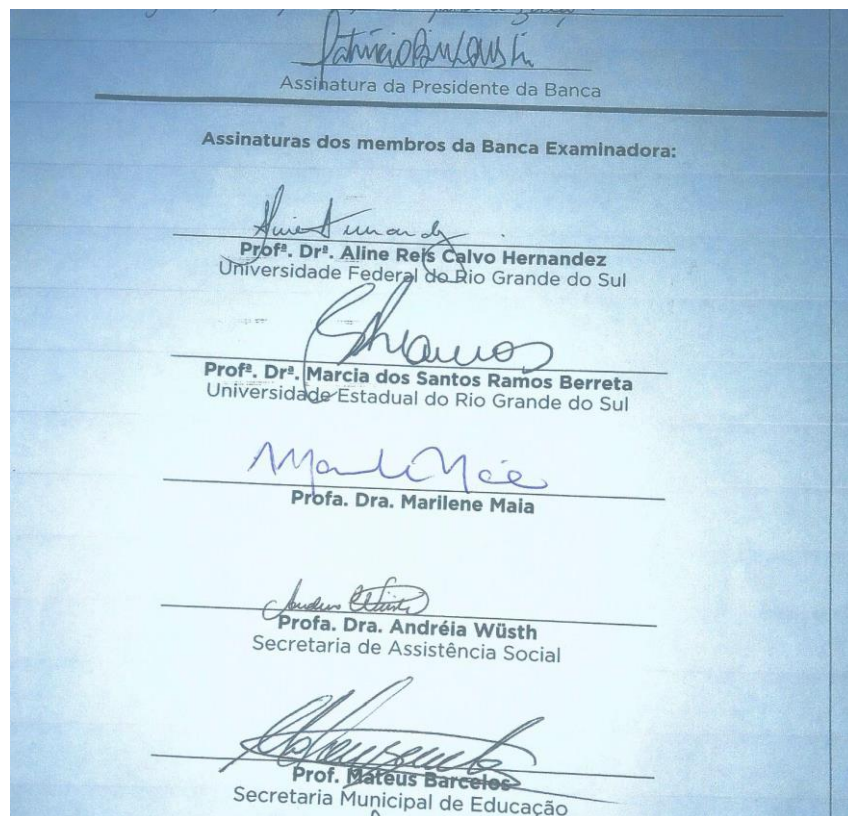 Assinatura da Presidente da Banca
Assinaturas dos membros da Banca Examinadora:
Profª. Drª. Aline Reis Calvo Hernandez
Universidade Federal do Rio Grande do Sul
Profª. Drª. Marcia dos Santos Ramos Berreta
Universidade Estadual do Rio Grande do Sul
Profa. Dra. Marilene Maia
Profa. Dra. Andréia Wüsth
Secretaria de Assistência Social
Prof. Mateus Barcelos
Secretaria Municipal de Educação